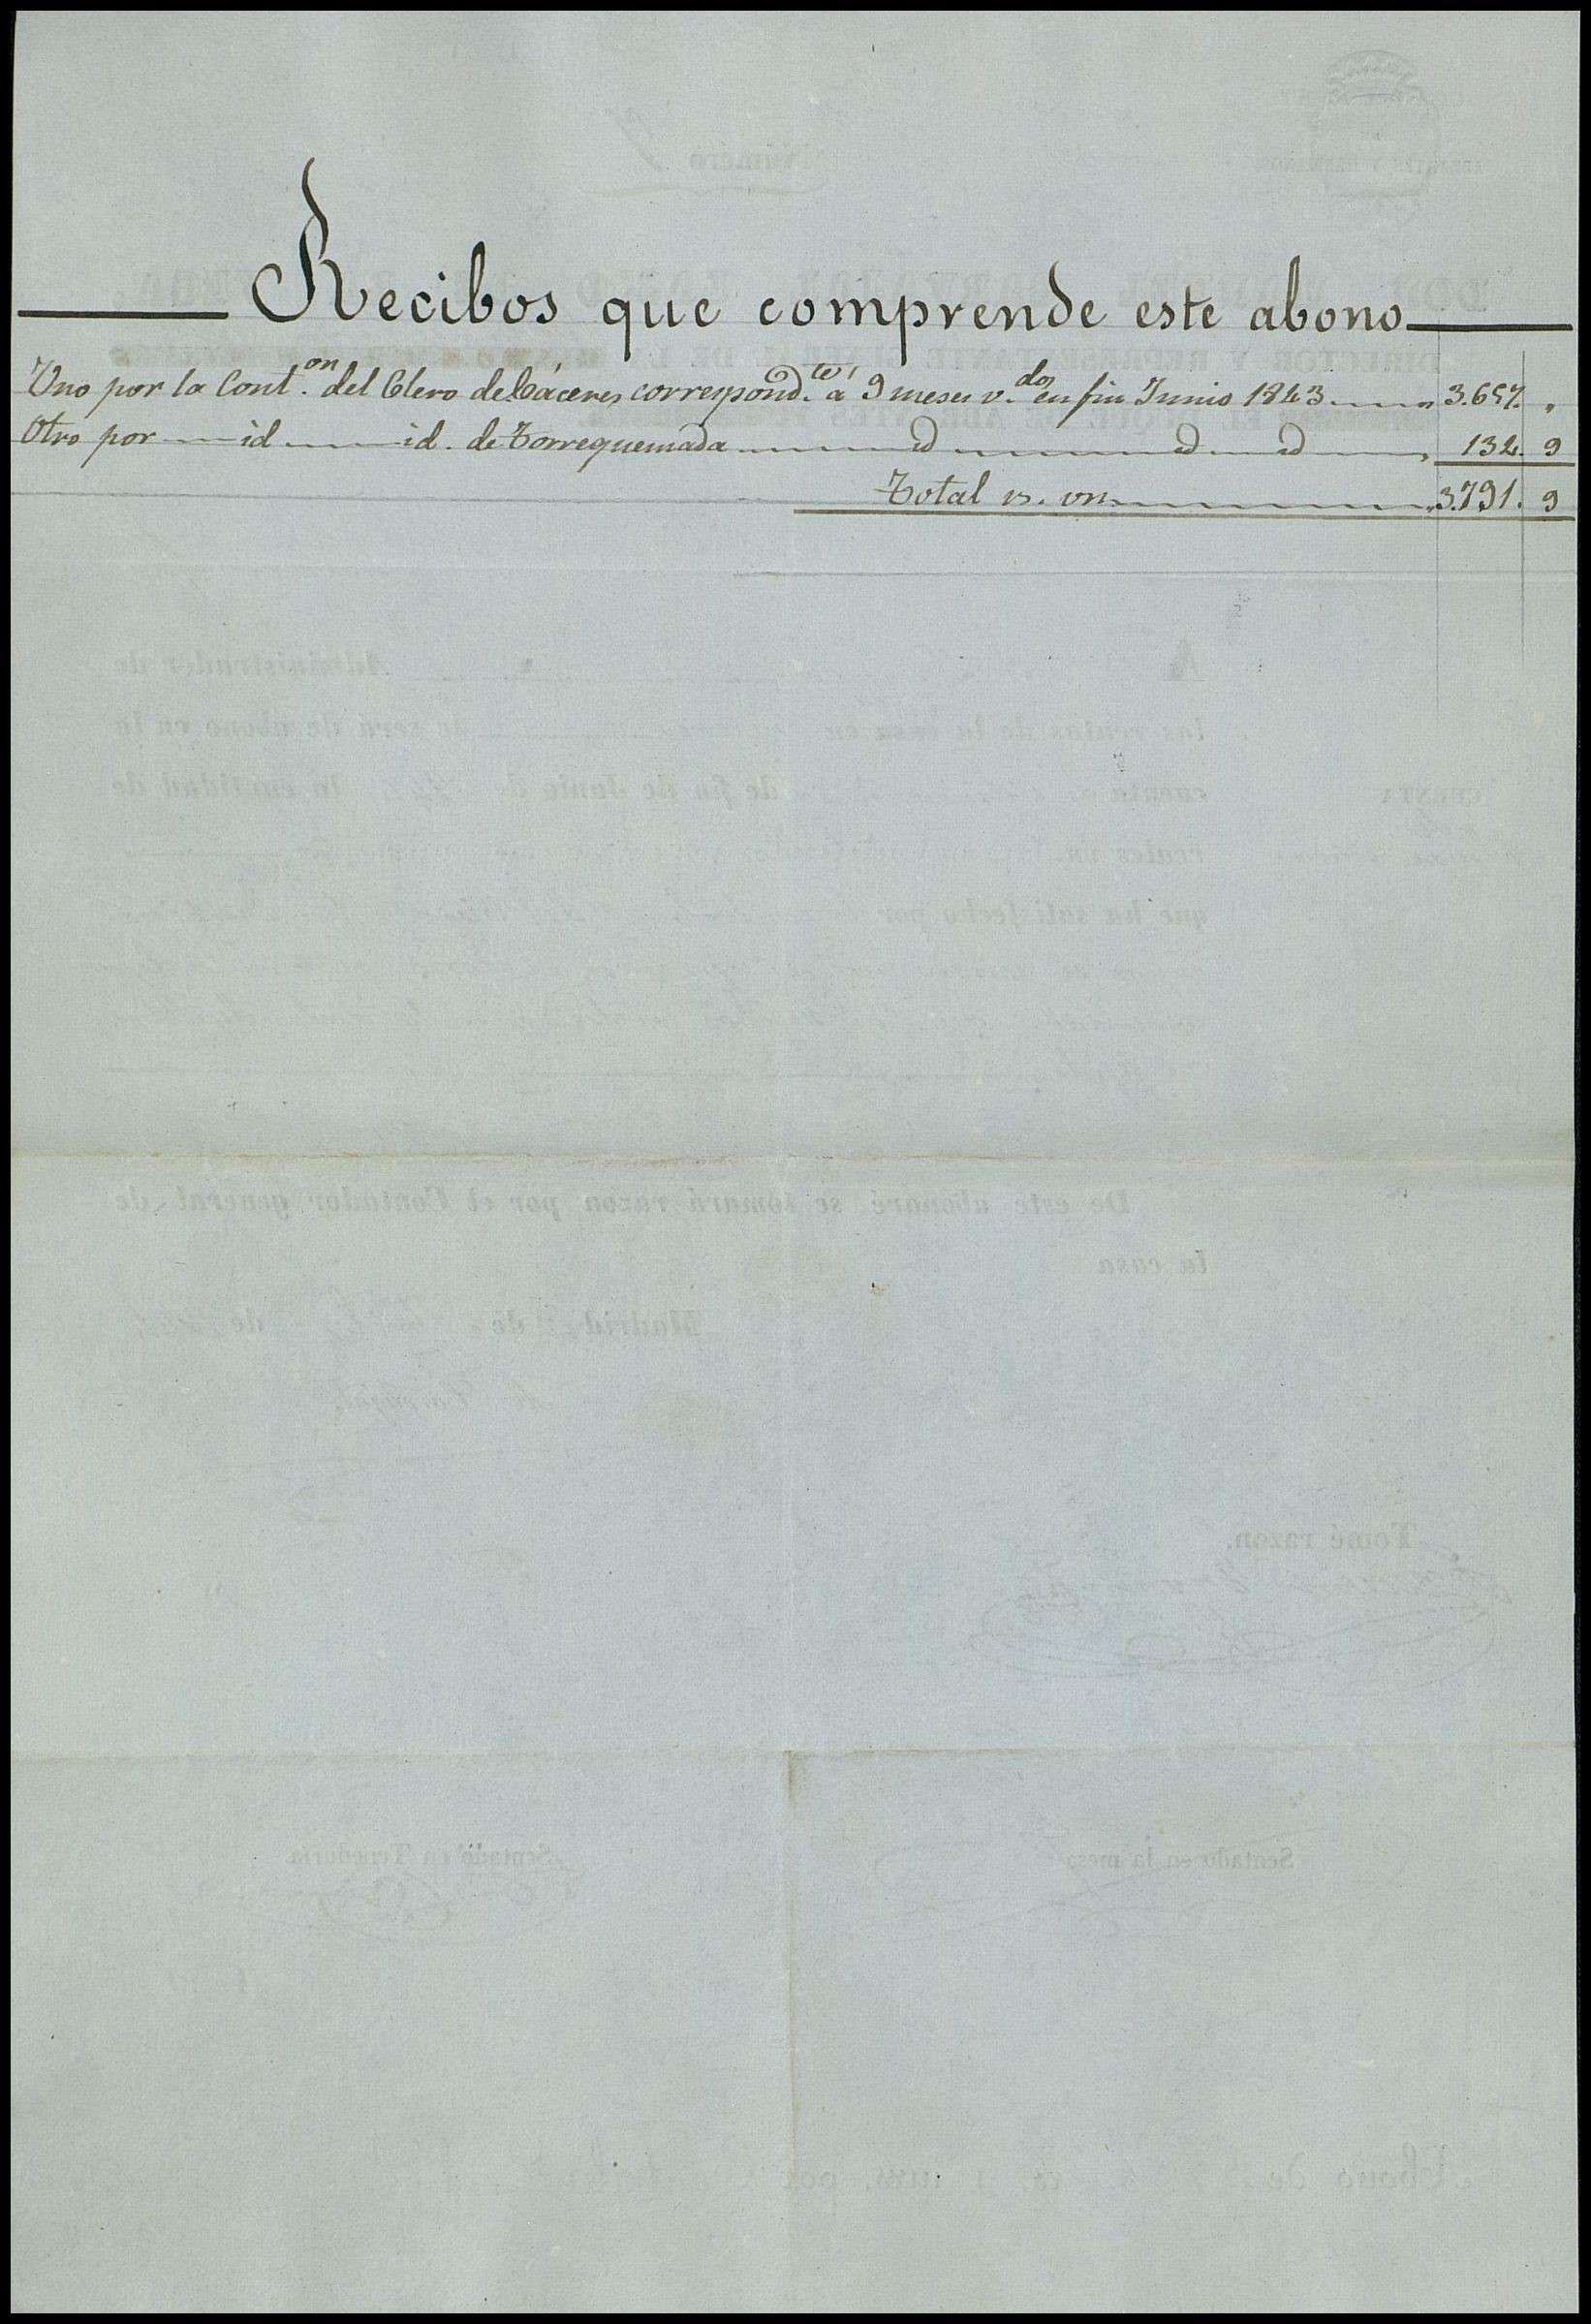 Recibos que comprende este abono
Uno por la Cont.on del Clero de Cáceres correspond.te á 9 meses v.dos en fin Junio 1843 3.657. "
Otro por id id. de Torrequemada id id id 134. 9
Total rs. vn. 3.791. 9